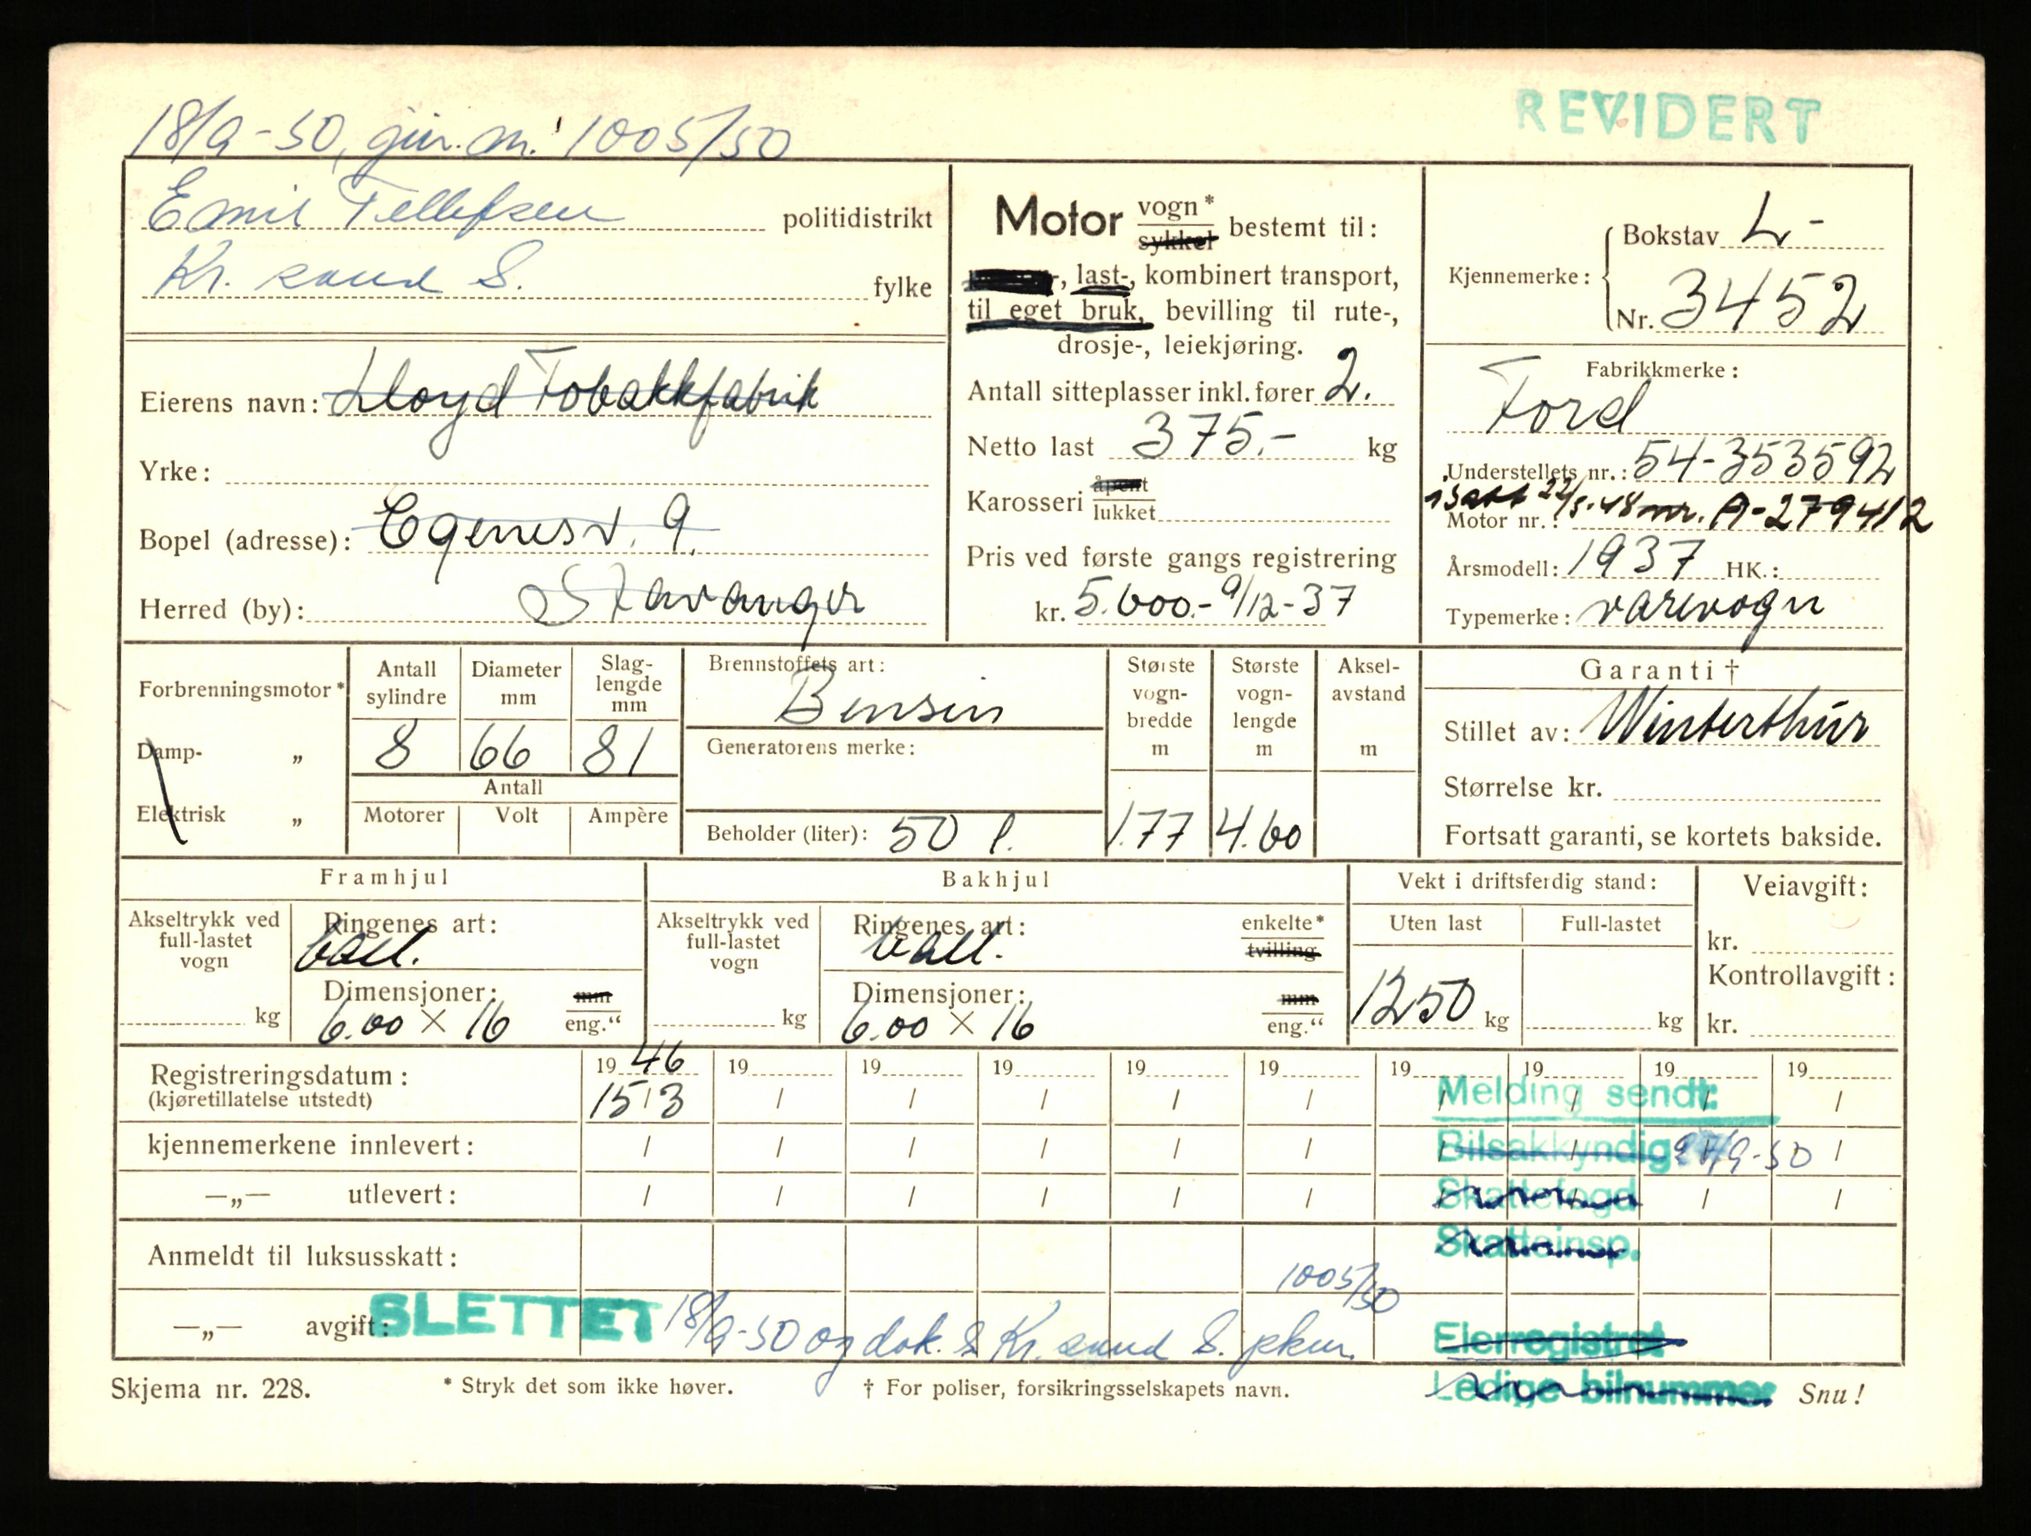 REVIDERT
18/9-50, 1005/50
Emil Tellefsen politidistrikt
Kr. sand S. fylke
Motor vogn* sykkel bestemt til:
last-, kombinert transport,
til eget bruk, bevilling til rute-,
drosje-, leiekjøring.
Antall sitteplasser inkl. fører 2.
Netto last 375.- kg
Karosseri åpent lukket
Pris ved første gangs registrering
kr. 5.600.- 9/12-37
Kjennemerke: Bokstav L-
Nr. 3452
Fabrikkmerke:
Ford
Understellets nr.: 54-353592
isatt 22/5.48 nr. A-279412
Motor nr.:
Årsmodell: 1937 HK.:
Typemerke: varevogn
Eierens navn: Lloyd Tobakkfabrik
Yrke:
Bopel (adresse): Egenesv. 9.
Herred (by): Stavanger
Forbrenningsmotor*
Damp- „
Elektrisk „
Antall sylindre 8
Diameter mm 66
Slag-lengde mm 81
Antall
Motorer Volt Ampère
Brennstoffets art:
Bensin
Generatorens merke:
Beholder (liter): 50 l.
Største vogn-bredde m 1.77
Største vogn-lengde m 4.60
Aksel-avstand m
Garanti †
Stillet av: Winterthur
Størrelse kr.
Fortsatt garanti, se kortets bakside.
Framhjul
Akseltrykk ved full-lastet vogn kg
Ringenes art:
ball.
Dimensjoner: mm
6.00 × 16 eng."
Bakhjul
Akseltrykk ved full-lastet vogn kg
Ringenes art: enkelte*
ball. tvilling
Dimensjoner: mm
6.00 × 16 eng."
Vekt i driftsferdig stand:
Uten last Full-lastet
1250 kg kg
Veiavgift:
kr.
Kontrollavgift:
kr.
19 46 19 19 19 19 19 19 19 19 19
Registreringsdatum: 15/3 / / / / / / / / /
(kjøretillatelse utstedt)
Melding sendt:
kjennemerkene innlevert: / / / / / / / / / /
Bilsakkyndig 27/9-50
—„— utlevert: / / / / / / / / / /
Skattefogd
Anmeldt til luksusskatt:
Skatteinsp.
1005/50
—„— avgift: SLETTET 18/9-50 og dok. s Kr. sand S. pkm.
Eierregistret
Ledige bilnummer
Skjema nr. 228. * Stryk det som ikke høver. † For poliser, forsikringsselskapets navn. Snu!